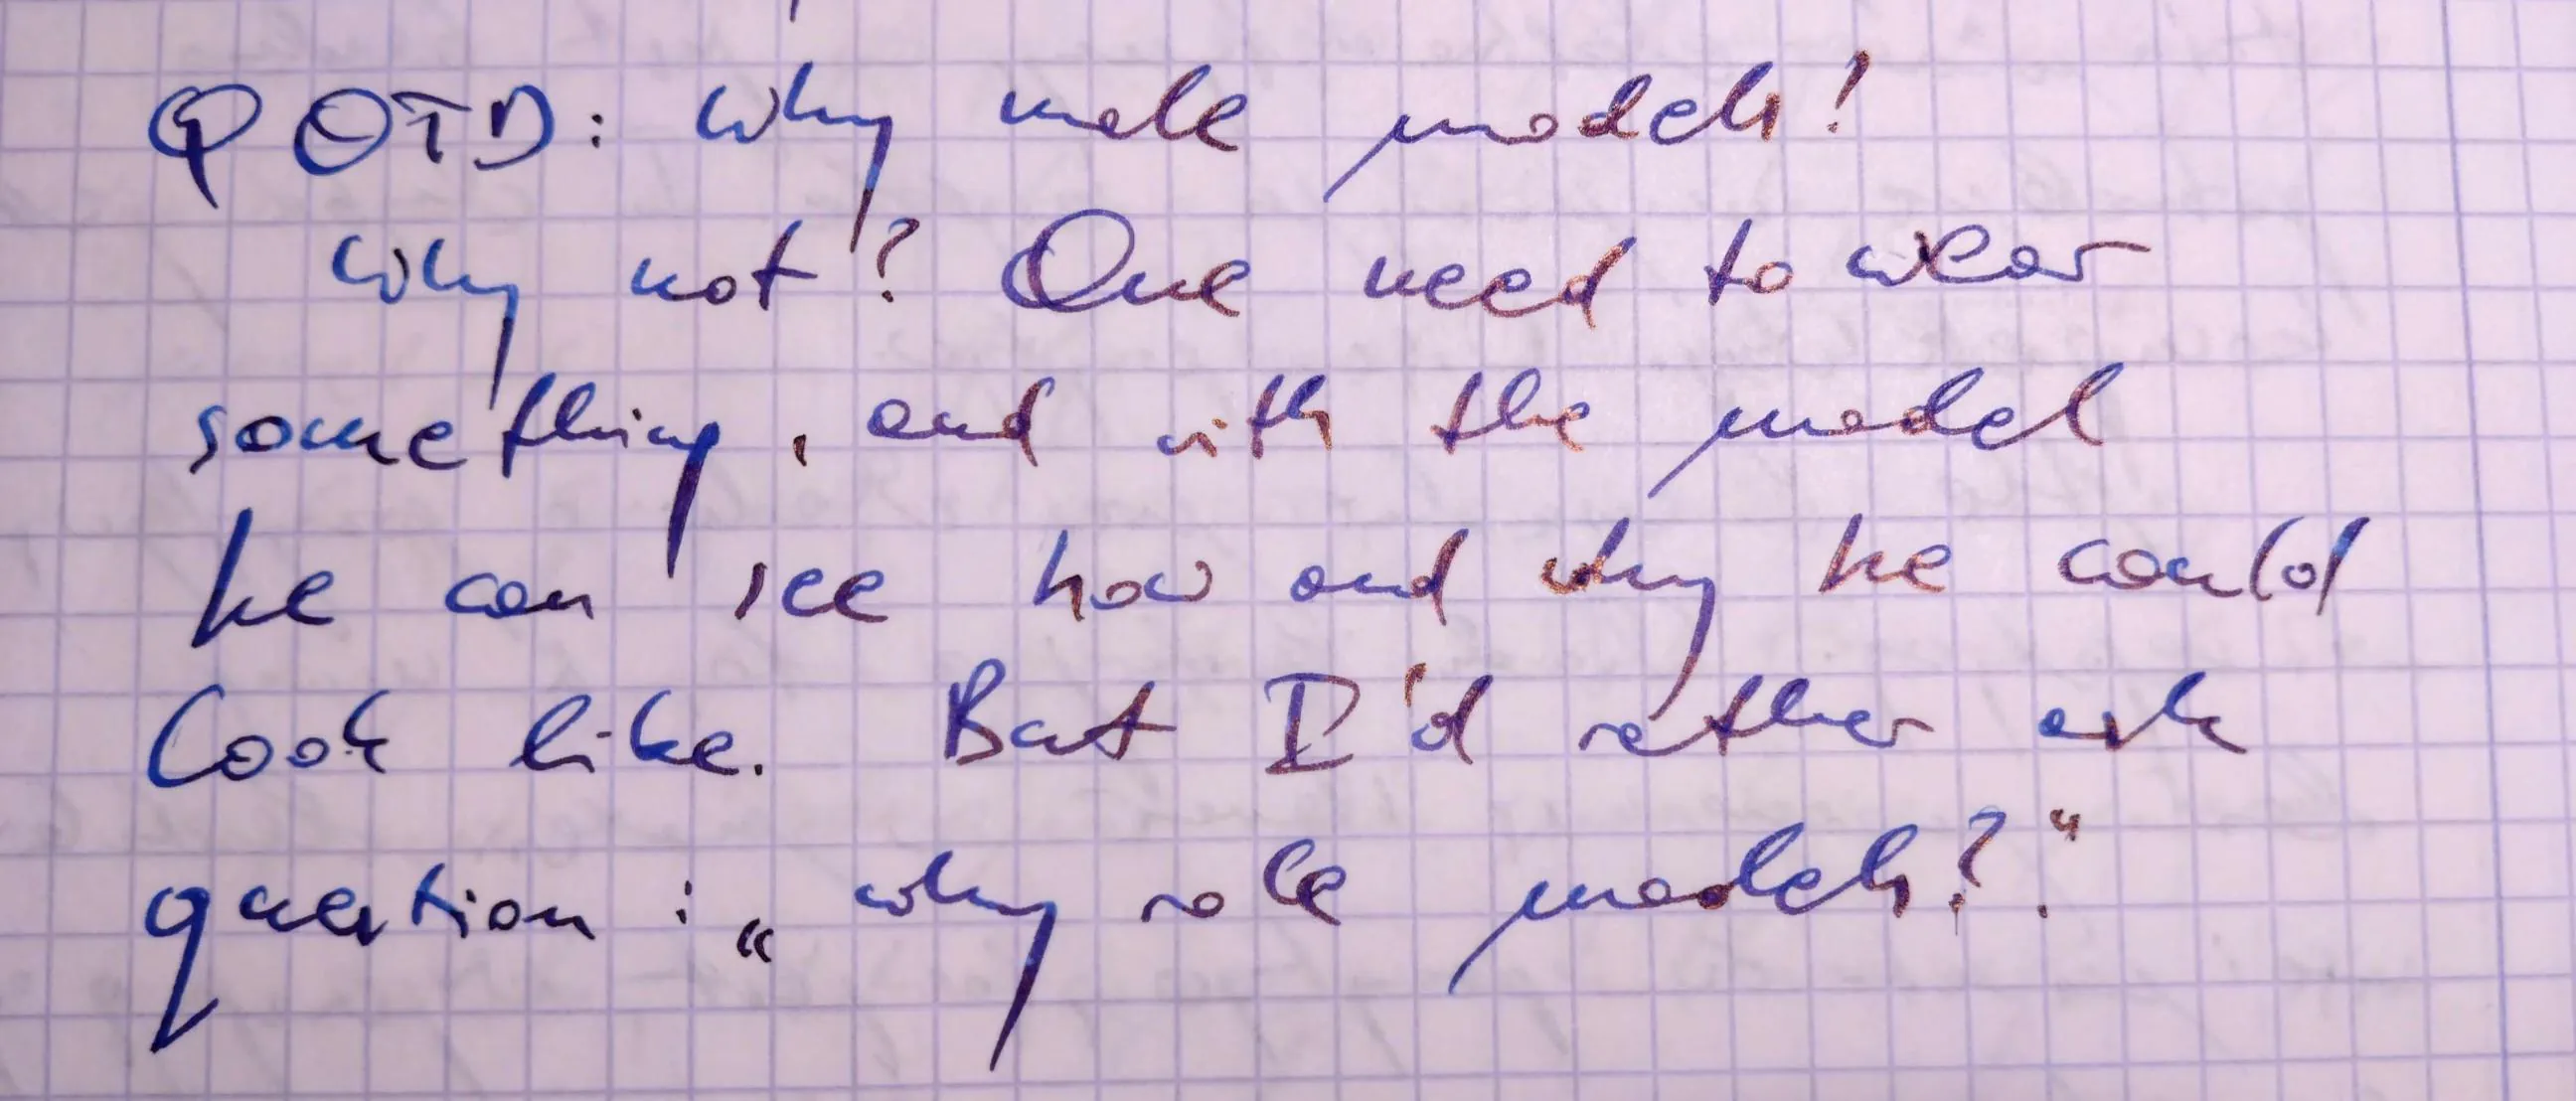 QOTD: Why male models?
Why not? One need to wear
something, and with the model
he can see how and why he could
look like. But I'd rather ask
question: „why role models?."